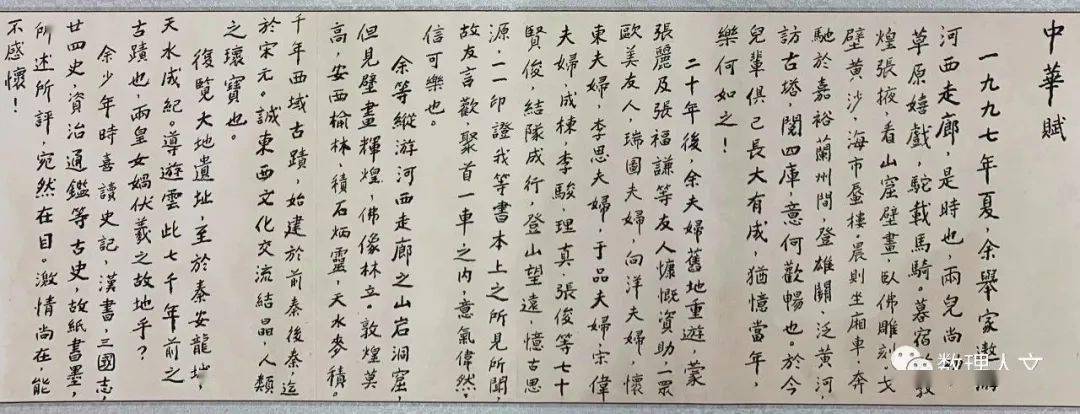 中華賦
一九九七年夏,余舉家遨游
河西走廊,是時也,兩兒尚
草原嬉戲,駝載馬騎。暮宿
煌張掖,看山窟壁畫,臥佛雕刻,戈
壁黃沙,海市蜃樓,晨則坐廂車,奔
馳於嘉裕蘭州間,登雄關,泛黃河,
訪古塔閣四庫,意何歡暢也。於今
兒輩俱已長大有成,猶憶當年,
樂何如之!
二十年後,余夫婦舊地重遊,蒙
張麗及張福謙等友人慷慨資助一眾
歐美友人,瑞圖夫婦,向洋夫婦,懷
東夫婦,李思夫婦,于品夫婦,宋偉
夫婦,成棟,李駿,理真,張俊等七十
賢俊,結隊成行,登山望遠,憶古思
源,一一印證我等書本上之所見所聞,
故友言歡,聚首一車之內,意氣偉然,
信可樂也。
余等縱游河西走廊之山岩洞窟,
但見壁畫輝煌,佛像林立。敦煌莫
高,安西榆林,積石炳靈,天水麥積。
千年西域古蹟,始建於前秦後秦迄
於宋元。誠東西文化交流結晶,人類
之瓌寶也。
復覽大地遺址,至於秦安龍地
天水成紀。導遊云此七千年前之
古蹟也,兩皇女媧伏羲之故地乎?
余少年時喜讀史記,漢書,三國志,
廿四史,資治通鑑等古史,故紙書墨,
所述所評,宛然在目。激情尚在,能
不感懷!
数理人文